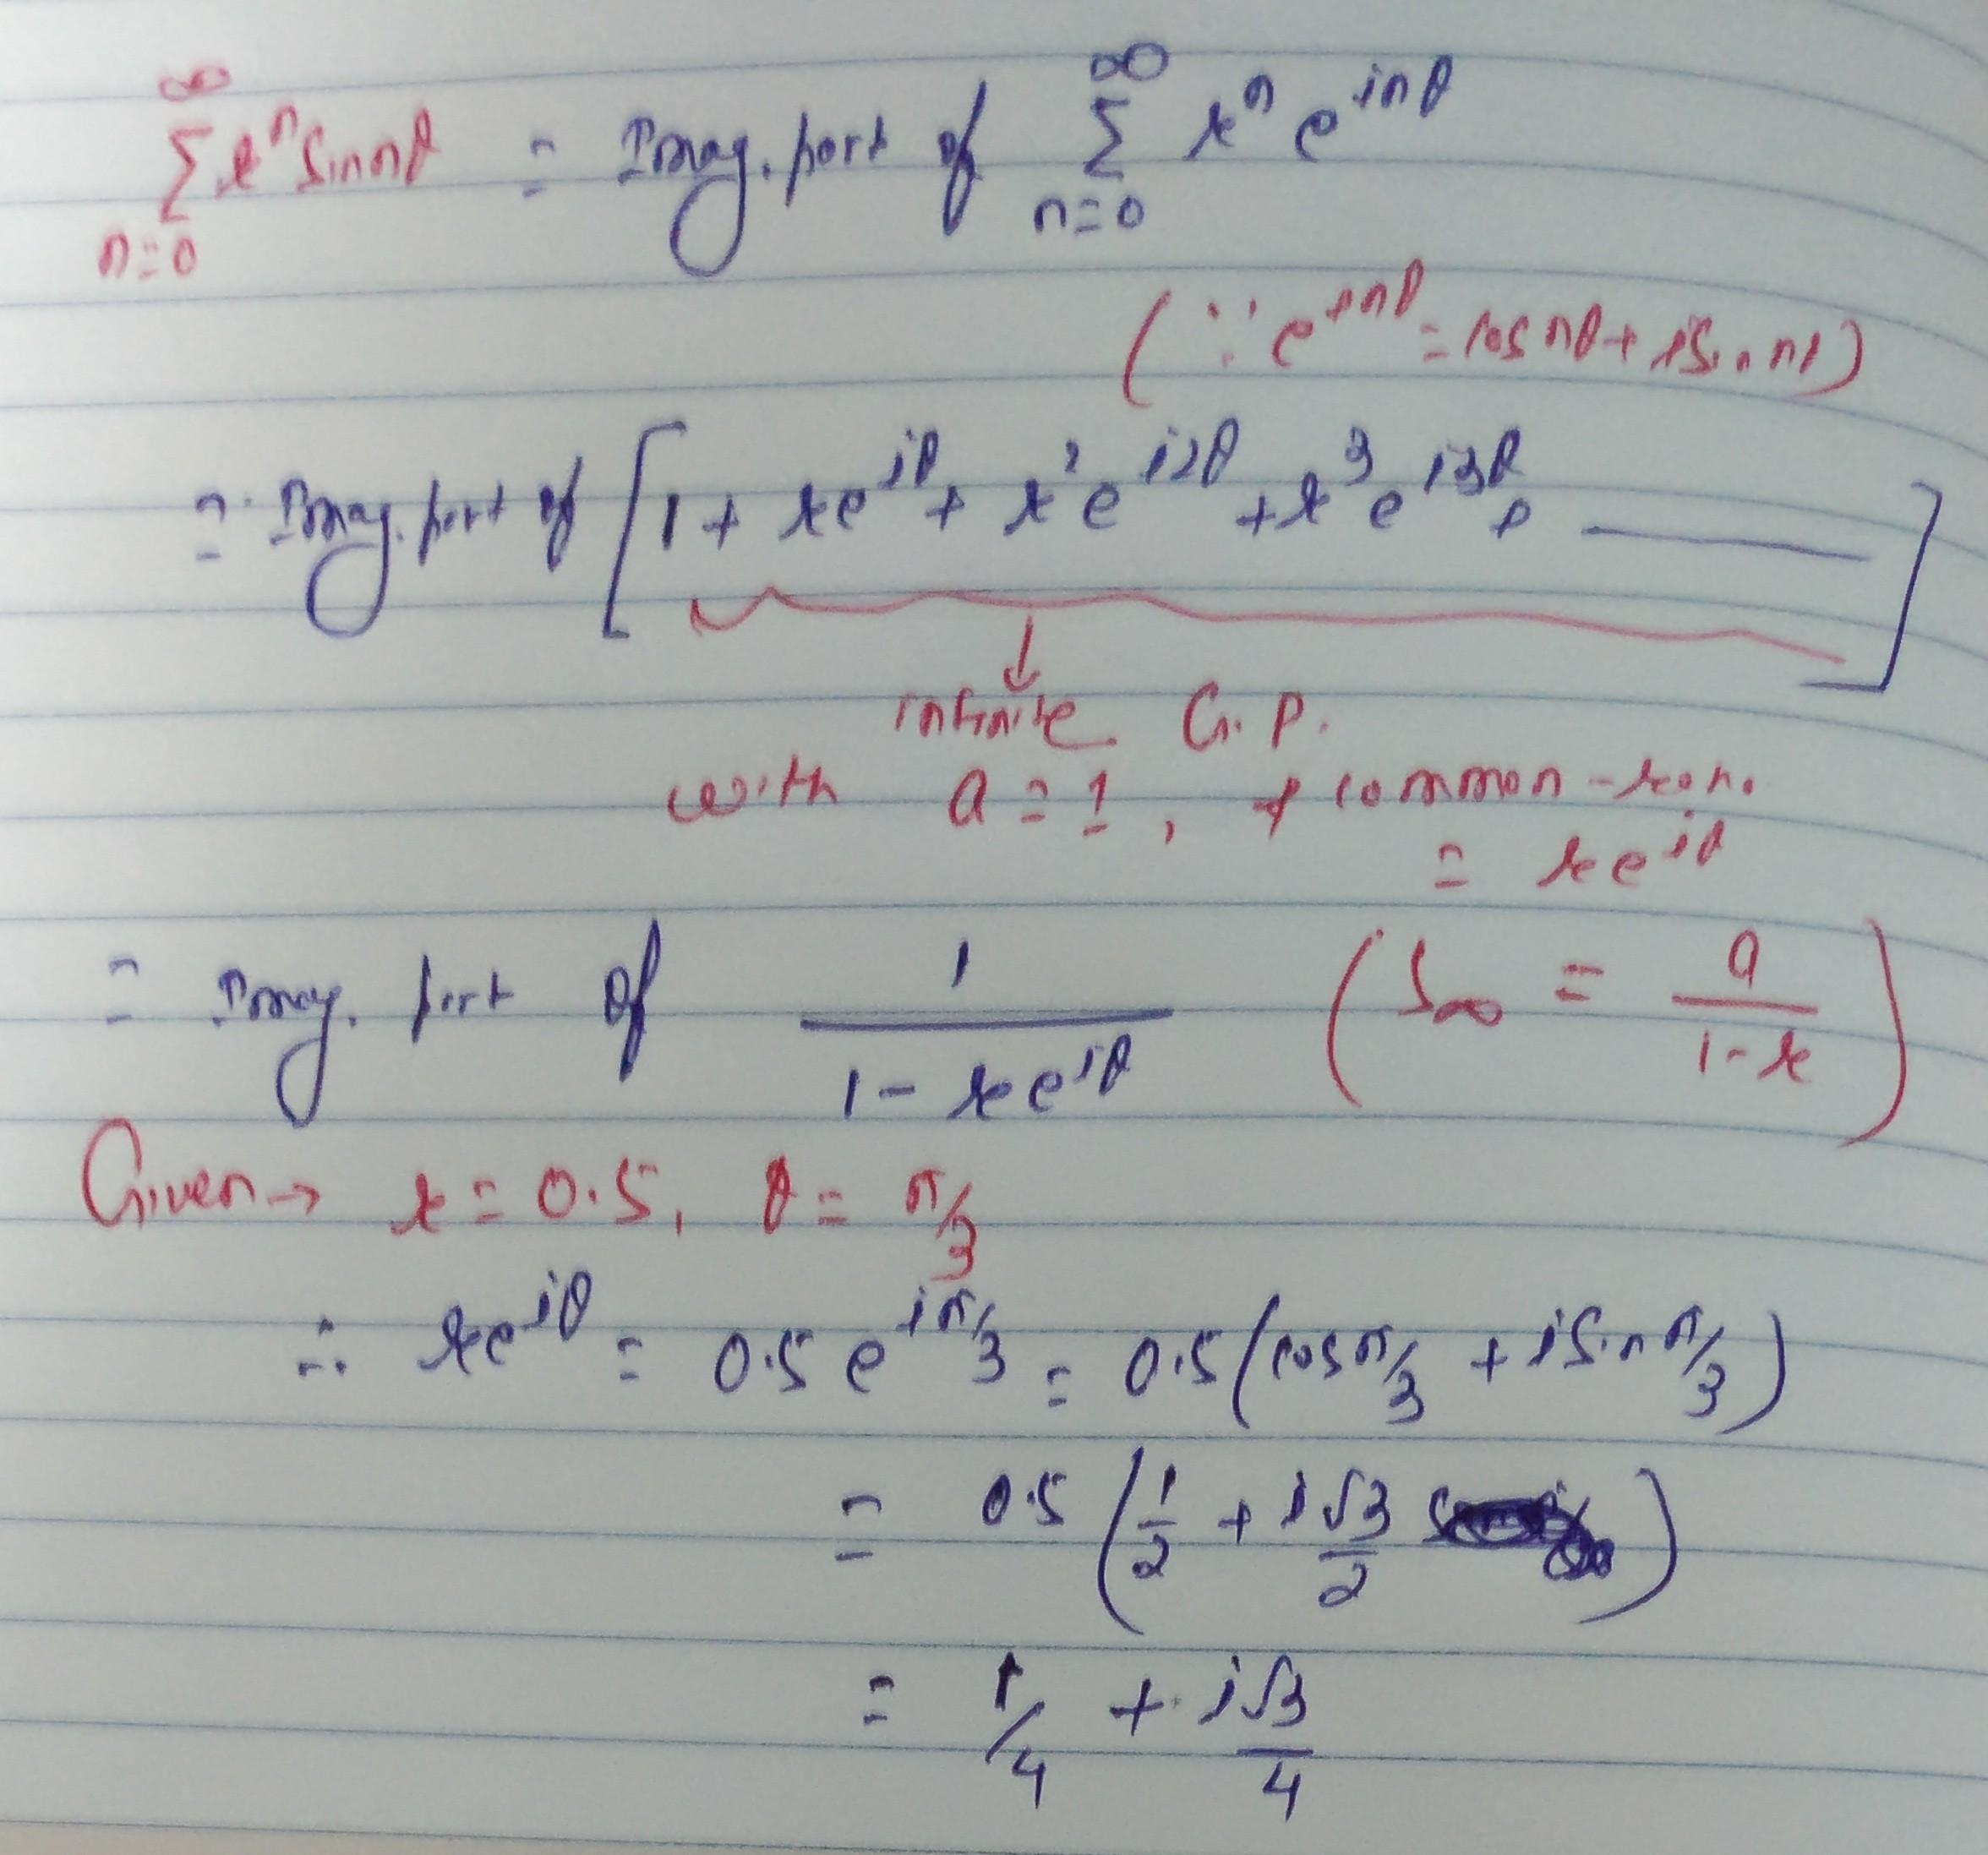 ∞ ∑ n=0 rⁿ Sin nθ = Imag. part of ∞ ∑ n=0 rⁿ e^{inθ}
(∵ e^{inθ} = cos nθ + i Sin nθ)
= Imag. part of [1 + re^{iθ} + r² e^{i2θ} + r³ e^{i3θ} + ———]
↓
infinite G.P.
with a = 1, + common-ratio
= re^{iθ}
= Imag. part of 1/(1 - re^{iθ}) (S∞ = a/(1-r))
Given → r = 0.5, θ = π/3
∴ re^{iθ} = 0.5 e^{iπ/3} = 0.5 (cos π/3 + i Sin π/3)
= 0.5 (1/2 + i√3/2)
= 1/4 + i√3/4